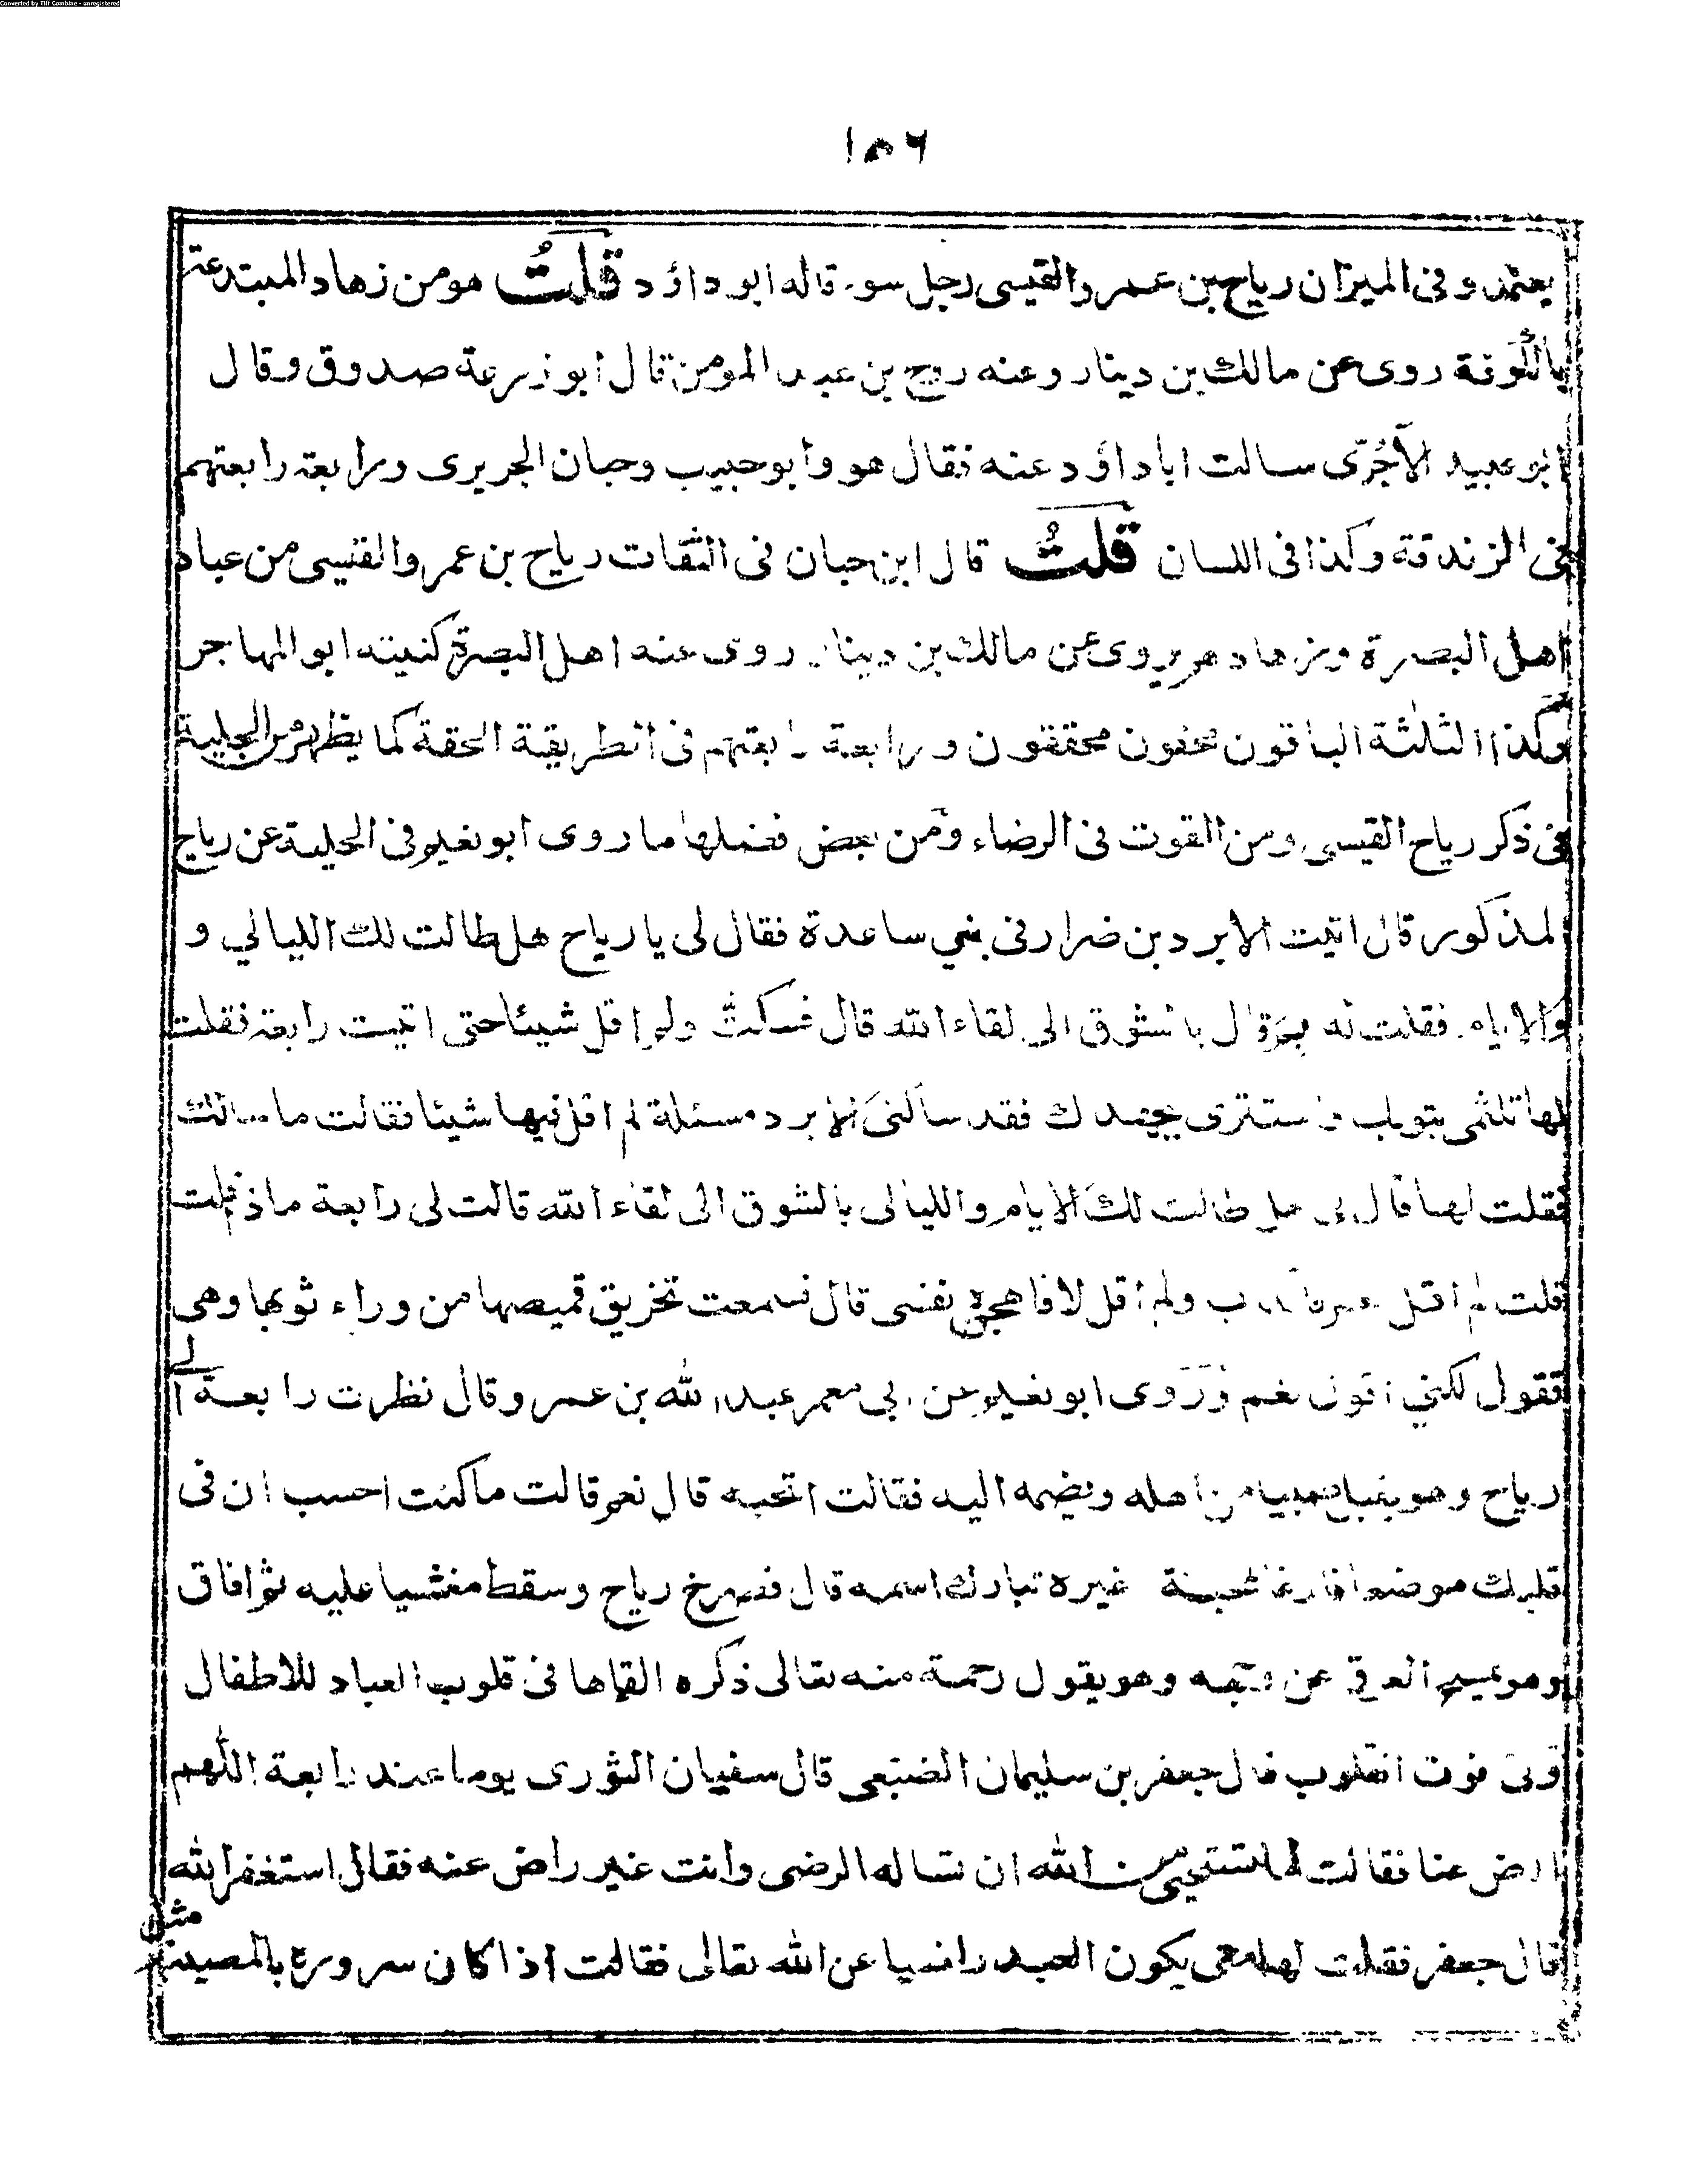 Converted by Tiff Combine - unregistered
١٥٦
يعتمد وفى الميزان رياح بن عمرو القيسى رجل سوء قاله ابو داؤد قلتُ هو من زهاد المبتدعة
بالكوفة روى عن مالك بن دينار وعنه روح بن عبد المومن قال ابو زرعة صدوق وقال
ابو عبيد الآجُرّى سالت ابا داؤد عنه فقال هو وابو حبيب وحبان الجريرى ورابعة رابعتهم
فى الزندقة وكذا فى اللسان قلتُ قال ابن حبان فى الثقات رياح بن عمرو القيسى من عباد
اهل البصرة وزهادهم يروى عن مالك بن دينار روى عنه اهل البصرة كنيته ابو المهاجر
وكذا الثلثة الباقون محقون محققون ورابعة رابعتهم فى الطريقة الحقة كما يظهر من الحلية
فى ذكر رياح القيسى ومن القوت فى الرضاء ومن بعض فضلها ما روى ابو نعيم فى الحلية عن رياح
المذكور قال اتيت الابرد بن ضرار فى بنى ساعدة فقال لى يا رياح هل طالت لك الليالي و
والايام فقلت له بم قال بالشوق الى لقاء الله قال فسكتُّ ولم اقل شيئا حتى اتيت رابعة فقلت
لها تلثمى بثوبك واسترى بجهدك فقد سألنى الابرد مسئلة لم اقل فيها شيئا فقالت ما سالك
فقلت لها قال لى هل طالت لك الايام والليالى بالشوق الى لقاء الله قالت لى رابعة ماذ قلت
قلت لم اقل نعم ولم اقل لا فاهجن نفسى قال فسمعت تخريق قميصها من وراء ثوبها وهى
فقول لكنى اقول نعم وَرَوى ابو نعيم عن ابى معمر عبد الله بن عمرو قال نظرت رابعة الى
رياح وهو يقبل صبيا من اهله ويضمه اليه فقالت اتحبه قال نعم قالت ما كنت احسب ان فى
قلبك موضعا فارغا لمحبة غيره تبارك اسمه قال فصرخ رياح وسقط مغشيا عليه ثم افاق
وهو يمسح العرق عن وجهه وهو يقول رحمة منه تعالى ذكره القاها فى قلوب العباد للاطفال
وفى قوت القلوب قال جعفر بن سليمان الضبعى قال سفيان الثورى يوما عند رابعة اللهم
ارض عنا فقالت اما تستحيى من الله ان تساله الرضى وانت غير راض عنه فقال استغفر الله
قال جعفر فقلت لها متى يكون العبد راضيا عن الله تعالى فقالت اذا كان سروره بالمصيبة مثل